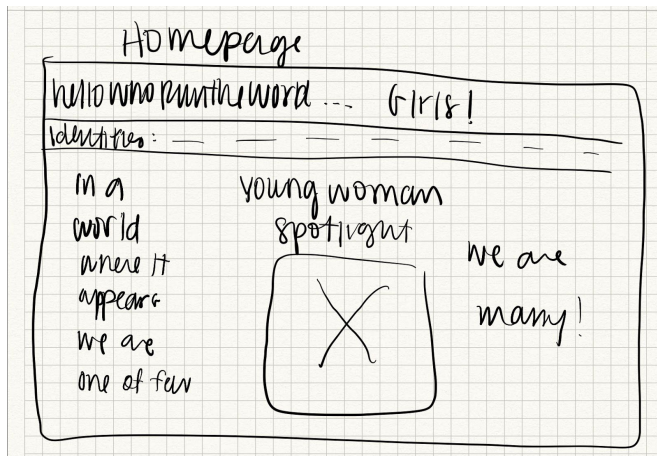 Homepage
hello who run the word ... Girls!
Identities: — — — — — — —
in a
world
where it
appears
we are
one of few
young woman
spotlight
we are
many!